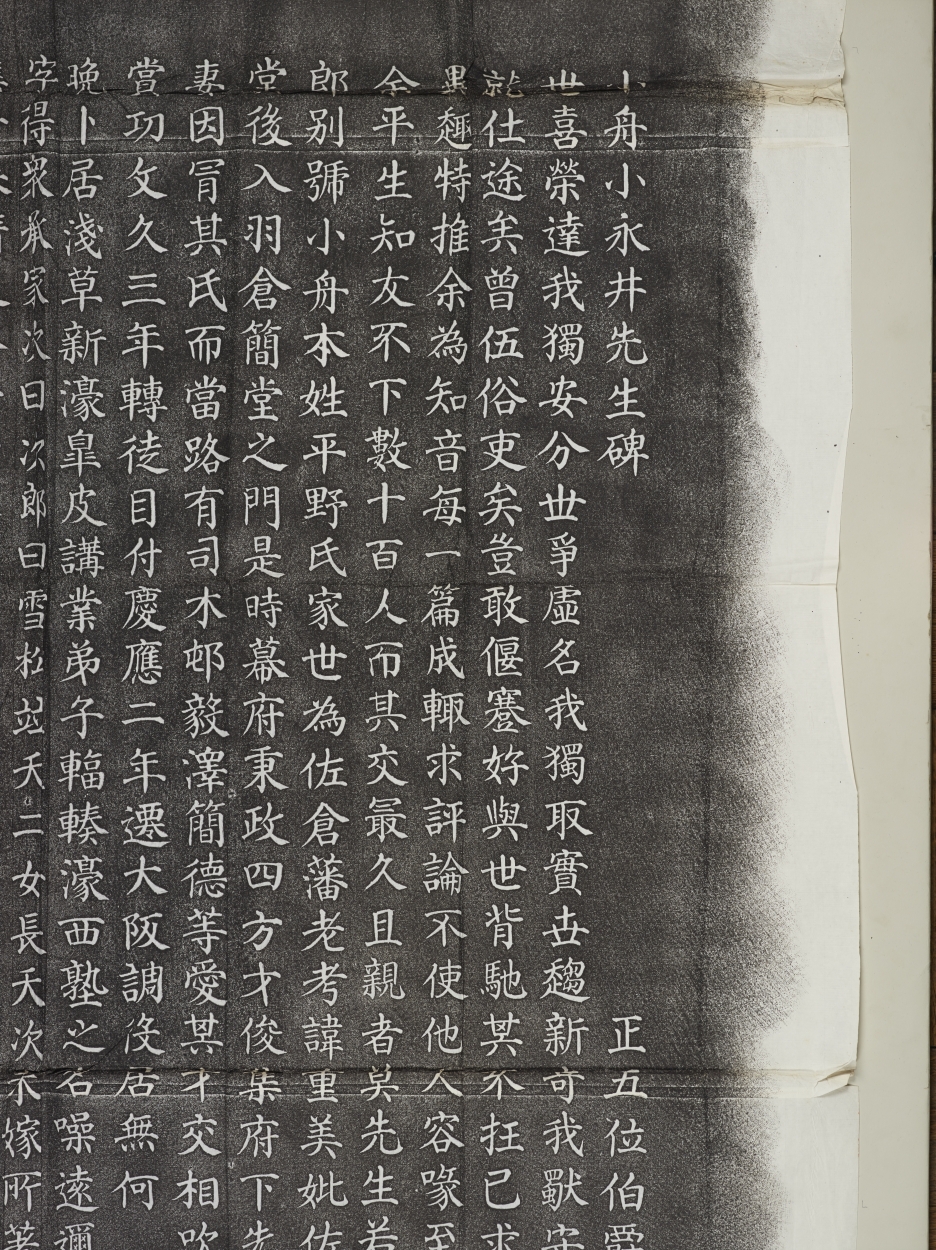 小舟小永井先生碑 正五位伯爵
世喜榮達我獨安分世爭虛名我獨取實世趨新奇我獸守
就仕途矣曾伍俗吏矣豈敢偃蹇好與世背馳其不抂已求
異趣特推余為知音每一篇成輒求評論不使他人容喙至
余平生知友不下數十百人而其交最久且親者莫先生若
郎別號小舟本姓平野氏家世為佐倉藩老考諱重美妣佐
堂後入羽倉簡堂之門是時幕府秉政四方才俊集府下先
妻因冐其氏而當路有司木邨毅澤簡德等愛其才交相吹
嘗功攵久三年轉徒目付慶應二年遷大阪調役居無何
晚卜居淺草新濠皐皮講業弟子輻輳濠西塾之名噪遠邇
字得衆承家次曰次郎曰雪松竝夭二女長夭次未嫁所著